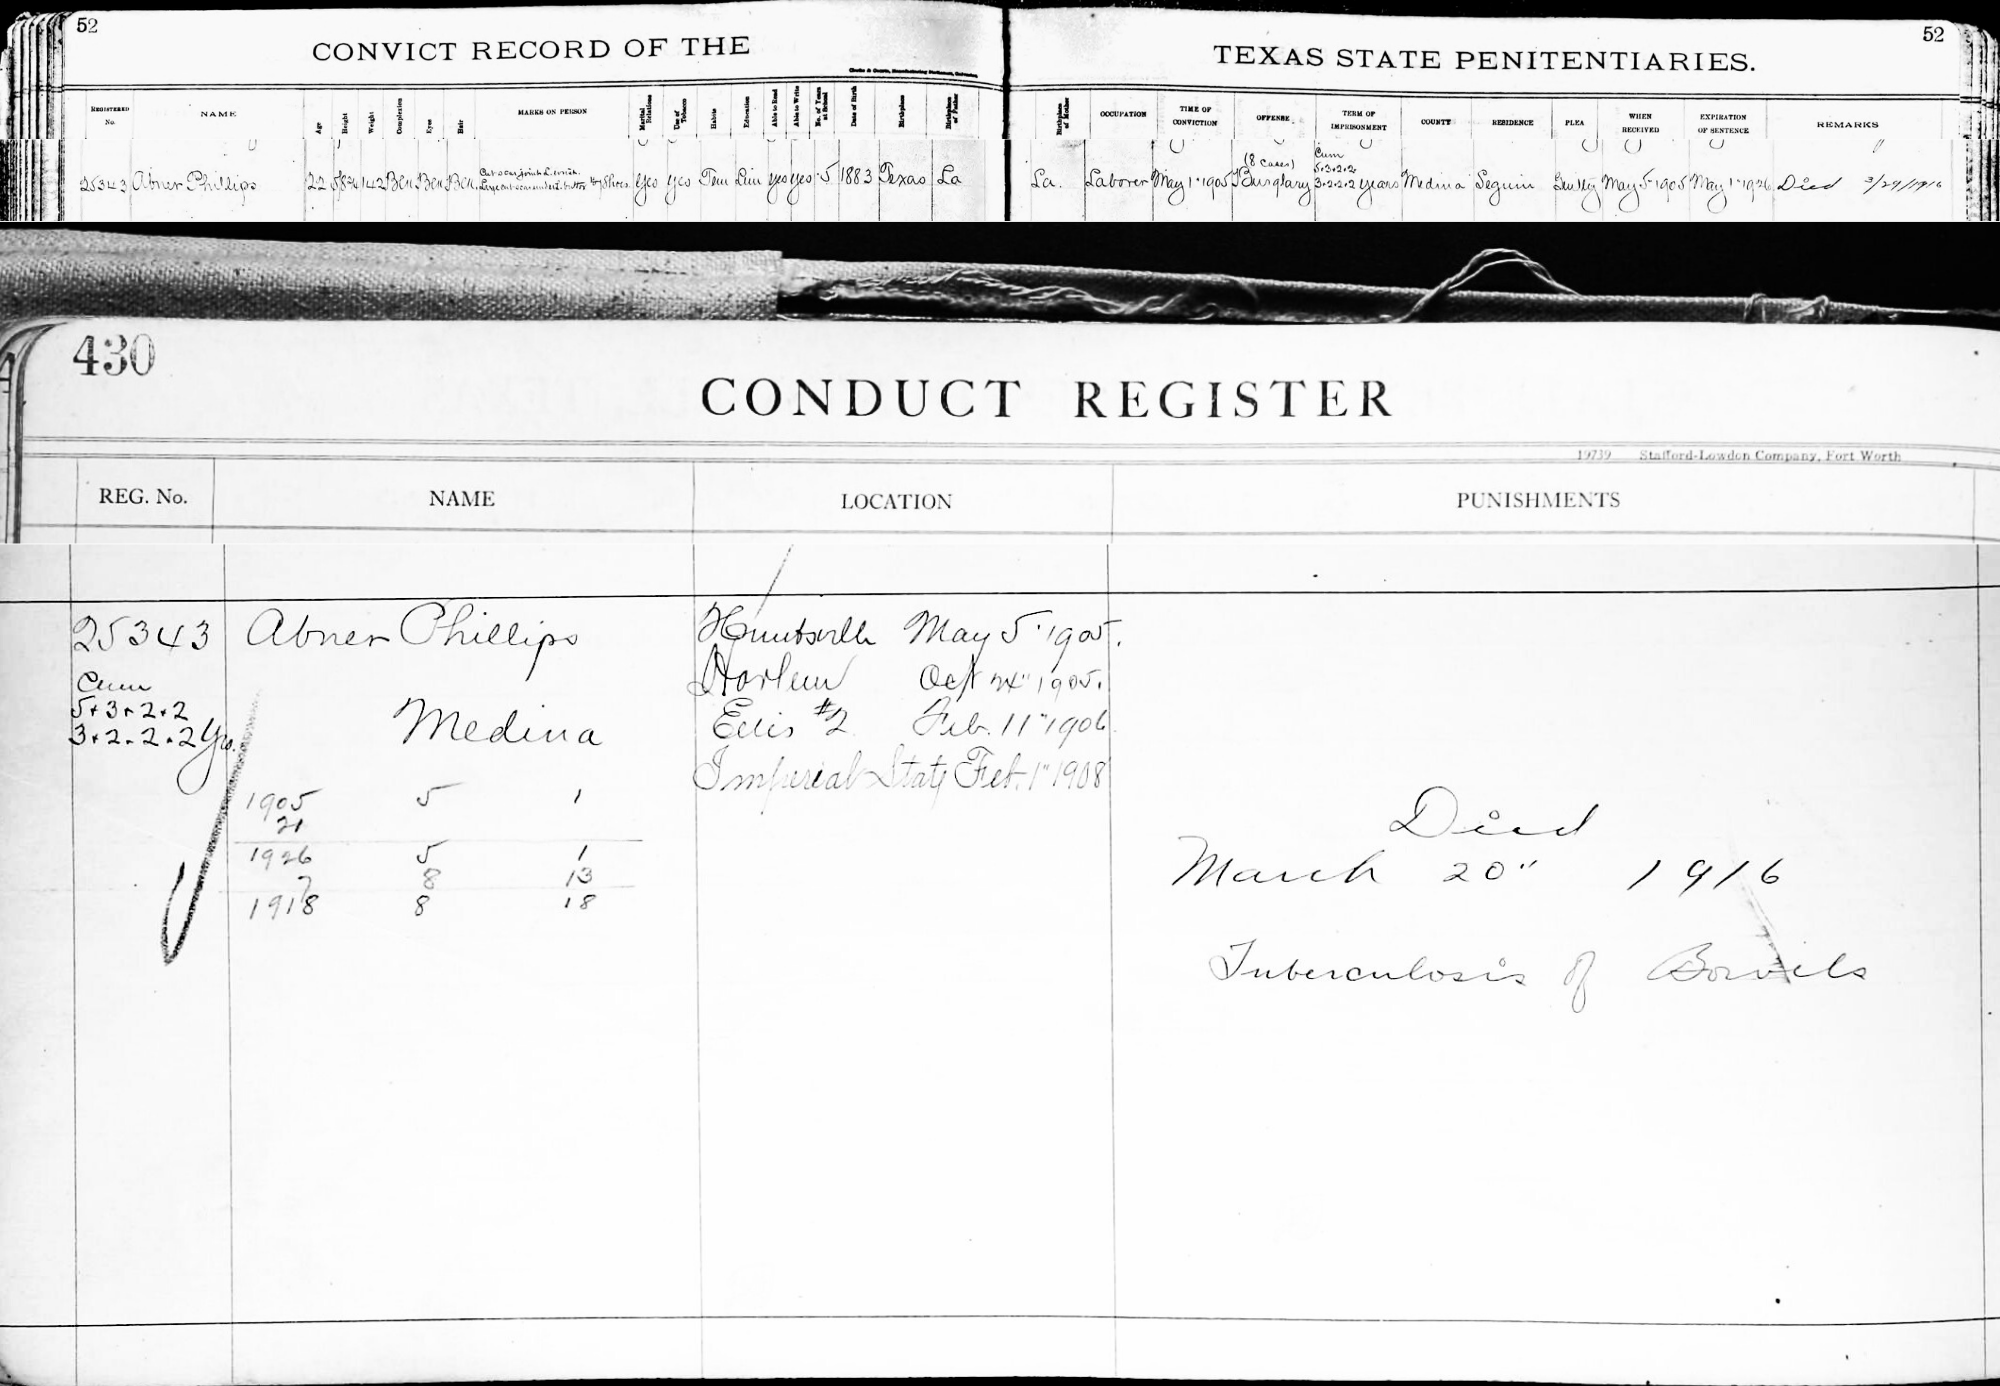 52
CONVICT RECORD OF THE
TEXAS STATE PENITENTIARIES.
52
REGISTERED No. NAME Age Height Weight Complexion Eyes Hair MARKS ON PERSON Marital Relations Use of Tobacco Habits Education Able to Read Able to Write No. of Years at School Date of Birth Birthplace Birthplace of Father Birthplace of Mother OCCUPATION TIME OF CONVICTION OFFENSE TERM OF IMPRISONMENT COUNTY RESIDENCE PLEA WHEN RECEIVED EXPIRATION OF SENTENCE REMARKS
(8 cases) Cum
5+3+2+2
25343 Abner Phillips 22 142 Yes Yes Tem Lim yes yes 5 1883 Texas La La. Laborer May 1" 1905 Burglary 3+2+2+2 years Medina Seguin Guilty May 5" 1905 May 1" 1926 Died
430
CONDUCT REGISTER
19739 Stafford-Lowdon Company, Fort Worth
REG. No. NAME LOCATION PUNISHMENTS
25343 Abner Phillips Huntsville May 5" 1905.
Cum Harlem Oct 24" 1905.
5+3+2+2
3+2+2+2 Yrs. Medina Ellis #2 Feb. 11" 1906
Imperial State Feb. 1" 1908
1905 5 1
21
1926 5 1
7 8 13
1918 8 18
Died
March 20" 1916
Tuberculosis of Bowels